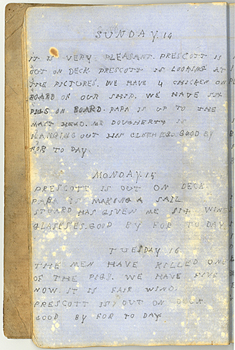 SUNDAY 14
IT IS VERY PLEASANT. PRESCOTT IS
OUT ON DECK PRESCOTT IS LOOKING AT
THE PICTURES. WE HAVE 4 CHICKEN ON
BOARD OF OUR SHIP. WE HAVE SIX
PIGS ON BOARD. PAPA IS UP TO THE
MAST HEAD. MR DOUGHERTY IS
HANGING OUT HIS CLOTHES. GOOD BY
FOR TO DAY.
MONDAY 15
PRESCOTT IS OUT ON DECK.
PAPA IS MAKING A SAIL
STUARD HAS GIVEN ME SIX WINE
GLASSES. GOOD BY FOR TO DAY
TUESDAY 16.
THE MEN HAVE KILLED ONE
OF THE PIGS. WE HAVE FIVE
NOW IT IS FAIR WIND.
PRESCOTT IS OUT ON DECK
GOOD BY FOR TO DAY.